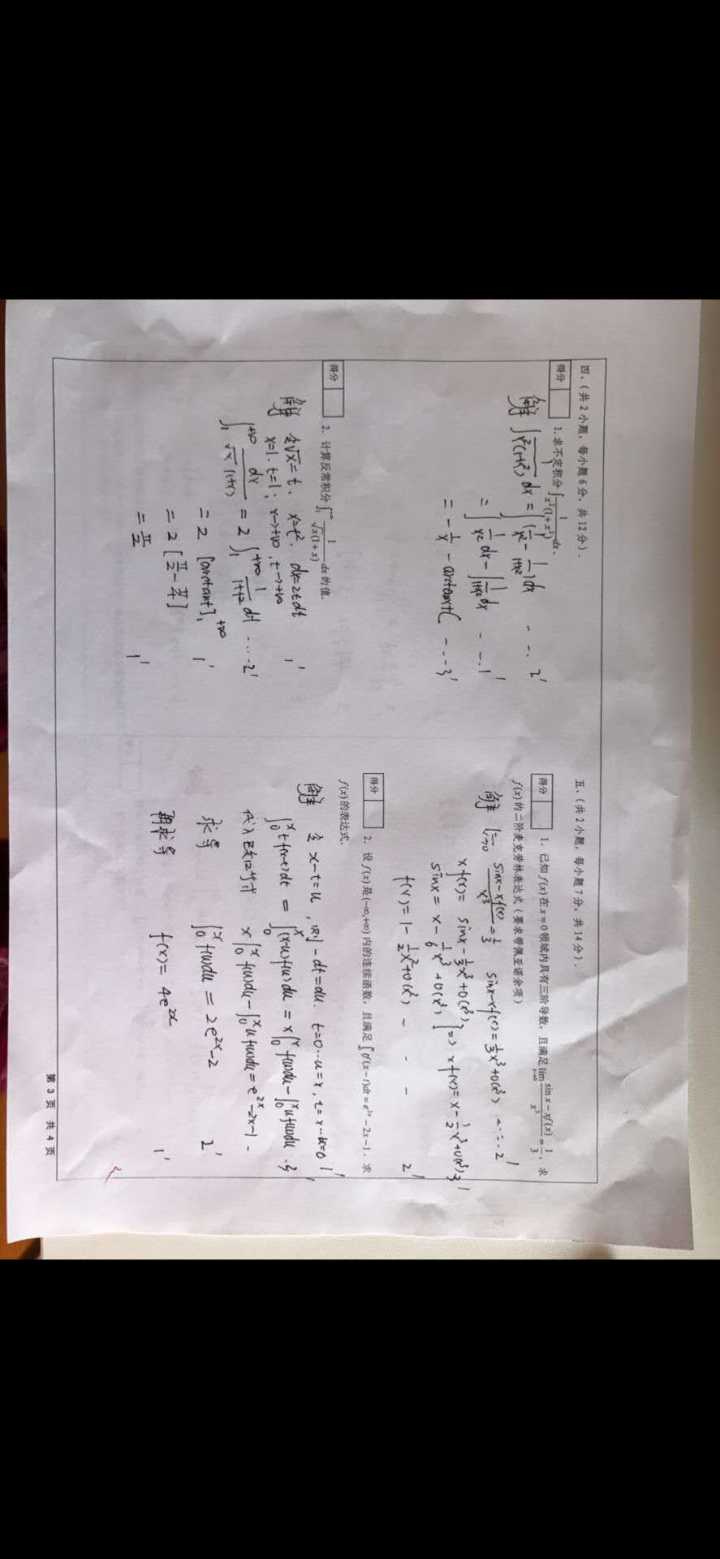 四、(共 2 小题, 每小题 6 分, 共 12 分).
得分
1. 求不定积分 ∫ 1/(x²(1+x²)) dx.
解 ∫ 1/(x²(1+x²)) dx = ∫(1/x² - 1/(1+x²))dx - - . 2'
= ∫ 1/x² dx - ∫ 1/(1+x²) dx - - . 1'
= - 1/x - arctanx+C - - . 3'
得分
2. 计算反常积分 ∫₁^{+∞} 1/(√x(1+x)) dx 的值.
解 令√x = t, x=t², dx=2tdt 1'
x=1, t=1; x→+∞, t→+∞
∫₁^{+∞} dx/(√x(1+x)) = 2 ∫₁^{+∞} 1/(1+t²) dt ... 2'
= 2 [arctant]₁^{+∞} 1'
= 2 [π/2 - π/4]
= π/2 1'
五、(共 2 小题, 每小题 7 分, 共 14 分).
得分
1. 已知 f(x) 在 x = 0 领域内具有三阶导数, 且满足 lim_{x→0} (sin x - xf(x))/x³ = 1/3, 求
f(x) 的二阶麦克劳林表达式 (要求带佩亚诺余项)
解 lim_{x→0} (sinx-xf(x))/x³ = 1/3 sinx-xf(x)= 1/3 x³+o(x³) ---- 2'
xf(x)= sinx - 1/3 x³+o(x³)
sinx = x - 1/6 x³ +o(x³) } => xf(x)= x - 1/2 x³+o(x³) 3'
f(x)= 1 - 1/2 x²+o(x²) - - - 2'
得分
2. 设 f(x) 是 (-∞,+∞) 内的连续函数, 且满足 ∫₀ˣ tf(x-t)dt = e^{2x} - 2x - 1, 求
f(x) 的表达式.
解 令 x-t=u, 则 -dt=du. t=0··u=x, t=x··u=0 1'
∫₀ˣ t f(x-t)dt = ∫₀ˣ (x-u)f(u)du = x∫₀ˣ f(u)du - ∫₀ˣ u f(u)du ·3'
代入已知以得 x∫₀ˣ f(u)du - ∫₀ˣ u f(u)du = e^{2x} -2x-1 -
求导 ∫₀ˣ f(u)du = 2e^{2x} -2 2'
再求导 f(x)= 4e^{2x} 1'
第 3 页 共 4 页